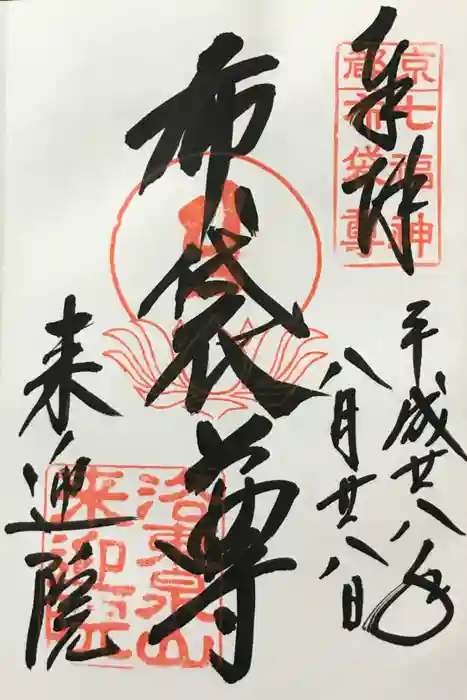 奉拝
京都七福神
布袋尊
平成廿八年
八月廿八日
布袋尊
来迎院
洛東泉山
来迎院